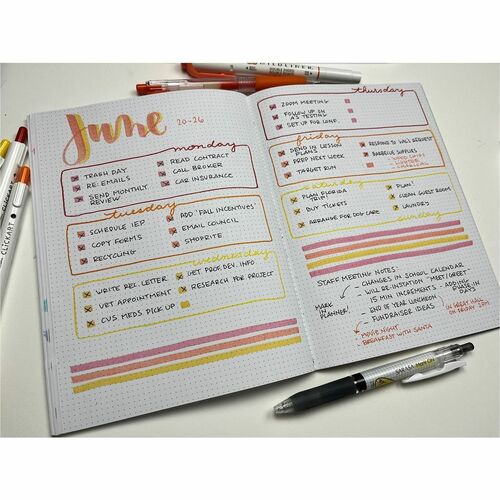 June
20-26
monday
TRASH DAY
RE: EMAILS
SEND MONTHLY
REVIEW
READ CONTRACT
CALL BROKER
CAR INSURANCE
tuesday
SCHEDULE IEP
COPY FORMS
RECYCLING
ADD 'FALL INCENTIVES'
EMAIL COUNCIL
SHOPRITE
wednesday
WRITE REC. LETTER
VET APPOINTMENT
CVS MEDS PICK UP
GET PROF. DEV. INFO
RESEARCH FOR PROJECT
thursday
ZOOM MEETING
FOLLOW UP ON
AS TESTING
SET UP FOR CONF.
friday
SEND IN LESSON
PLANS
PREP NEXT WEEK
TARGET RUN
RESPOND TO
REQUEST
BARBECUE SUPPLIES
WOOD CHIPS
LIGHTER
CHARCOAL
saturday
PLAN FLORIDA
TRIP!
BUY TICKETS
ARRANGE FOR DOG CARE
PLAN!
CLEAN GUEST ROOM
LAUNDRY
sunday
STAFF MEETING NOTES:
MARK
IN
PLANNER!
- CHANGES IN SCHOOL CALENDAR
- WILL RE-INSTATE "MEET/GREET"
- 15 MIN INCREMENTS - ADDING
HALF DAYS
- END OF YEAR LUNCHEON
- FUNDRAISER IDEAS
IN GREAT HALL
ON FRIDAY 2PM
MOVIE NIGHT
BREAKFAST WITH SANTA
SARASA
CLICKART